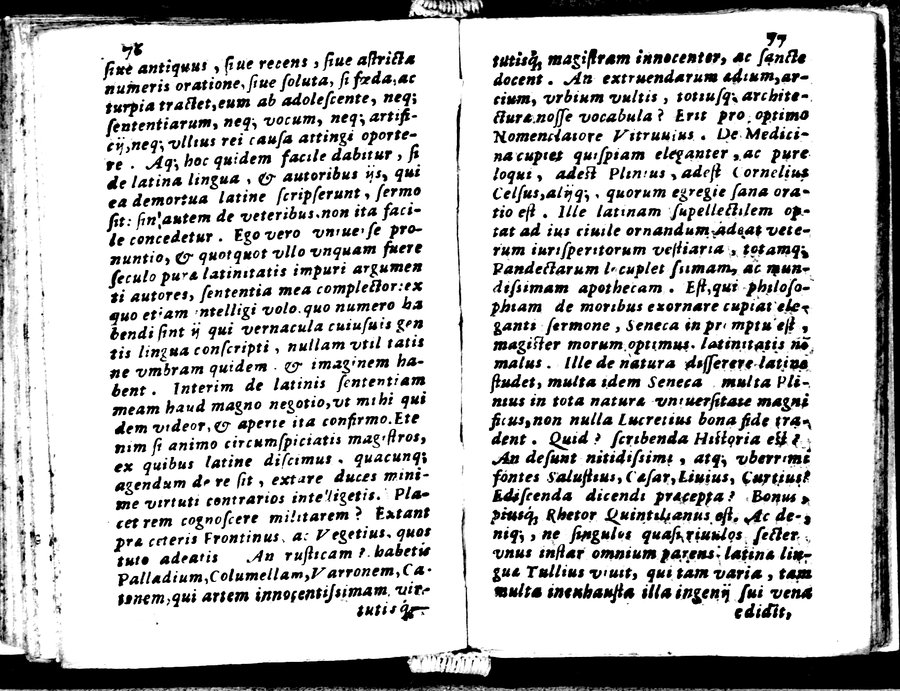 76
ſiue antiquus, ſiue recens, ſiue aſtricta
numeris oratione, ſiue ſoluta, ſi fæda, ac
turpia tractet, eum ab adoleſcente, neq;
ſententiarum, neq; vocum, neq; artifi-
cij, neq; vllius rei cauſa attingi oporte-
re. Aq; hoc quidem facile dabitur, ſi
de latina lingua, & autoribus ijs, qui
ea demortua latine ſcripſerunt, ſermo
ſit: ſin autem de veteribus. non ita faci-
le concedetur. Ego vero vniuerſe pro-
nuntio, & quotquot vllo vnquam fuere
ſeculo puræ latinitatis impuri argumen
ti autores, ſententia mea complector: ex
quo etiam intelligi volo. quo numero ha
bendi ſint ij qui vernacula cuiuſuis gen
tis lingua conſcripti, nullam vtilitatis
ne vmbram quidem & imaginem ha-
bent. Interim de latinis ſententiam
meam haud magno negotio, vt mihi qui
dem videor, & aperte ita confirmo. Ete
nim ſi animo circumſpiciatis magiſtros,
ex quibus latine diſcimus. quacunq;
agendum de re ſit, extare duces mini-
me virtuti contrarios intelligetis. Pla-
cet rem cognoſcere militarem? Extant
præ ceteris Frontinus. ac Vegetius. quos
tuto adeatis An ruſticam? habetis
Palladium, Columellam, Varronem, Ca-
tonem, qui artem innocentiſſimam vir-
tutisq́;
77
tutisq́; magiſtram innocenter, ac ſancte
docent. An extruendarum ædium, ar-
cium, vrbium vultis, totiuſq; archite-
cturæ noſſe vocabula? Erit pro optimo
Nomenclatore Vitruuius. De Medici-
na cupiet quiſpiam eleganter, ac pure
loqui, adeſt Plinius, adeſt Cornelius
Celſus, alijq;, quorum egregie ſana ora-
tio eſt. Ille latinam ſupellectilem op-
tat ad ius ciuile ornandum. Adeat vete-
rum iuriſperitorum veſtiaria, totamq;
Pandectarum locupletiſſimam, ac mun-
diſſimam apothecam. Eſt, qui philoſo-
phiam de moribus exornare cupiat ele-
ganti ſermone, Seneca in promptu eſt,
magiſter morum optimus. latinitatis nõ
malus. Ille de natura diſſerere latine
ſtudet, multa idem Seneca multa Pli-
nius in tota naturæ vniuerſitate magni
ficus, non nulla Lucretius bona fide tra-
dent. Quid? ſcribenda Hiſtoria eſt?
An deſunt nitidiſſimi, atq; vberrimi
fontes Saluſtius, Cæſar, Liuius, Curtius?
Ediſcenda dicendi præcepta? Bonus,
piusq́; Rhetor Quintilianus eſt. Ac de-
niq;, ne ſingulos quaſi riuulos ſecter
vnus inſtar omnium parens latinæ lin-
guæ Tullius viuit, qui tam varia, tam
multa inexhauſta illa ingenij ſui vena
edidit,